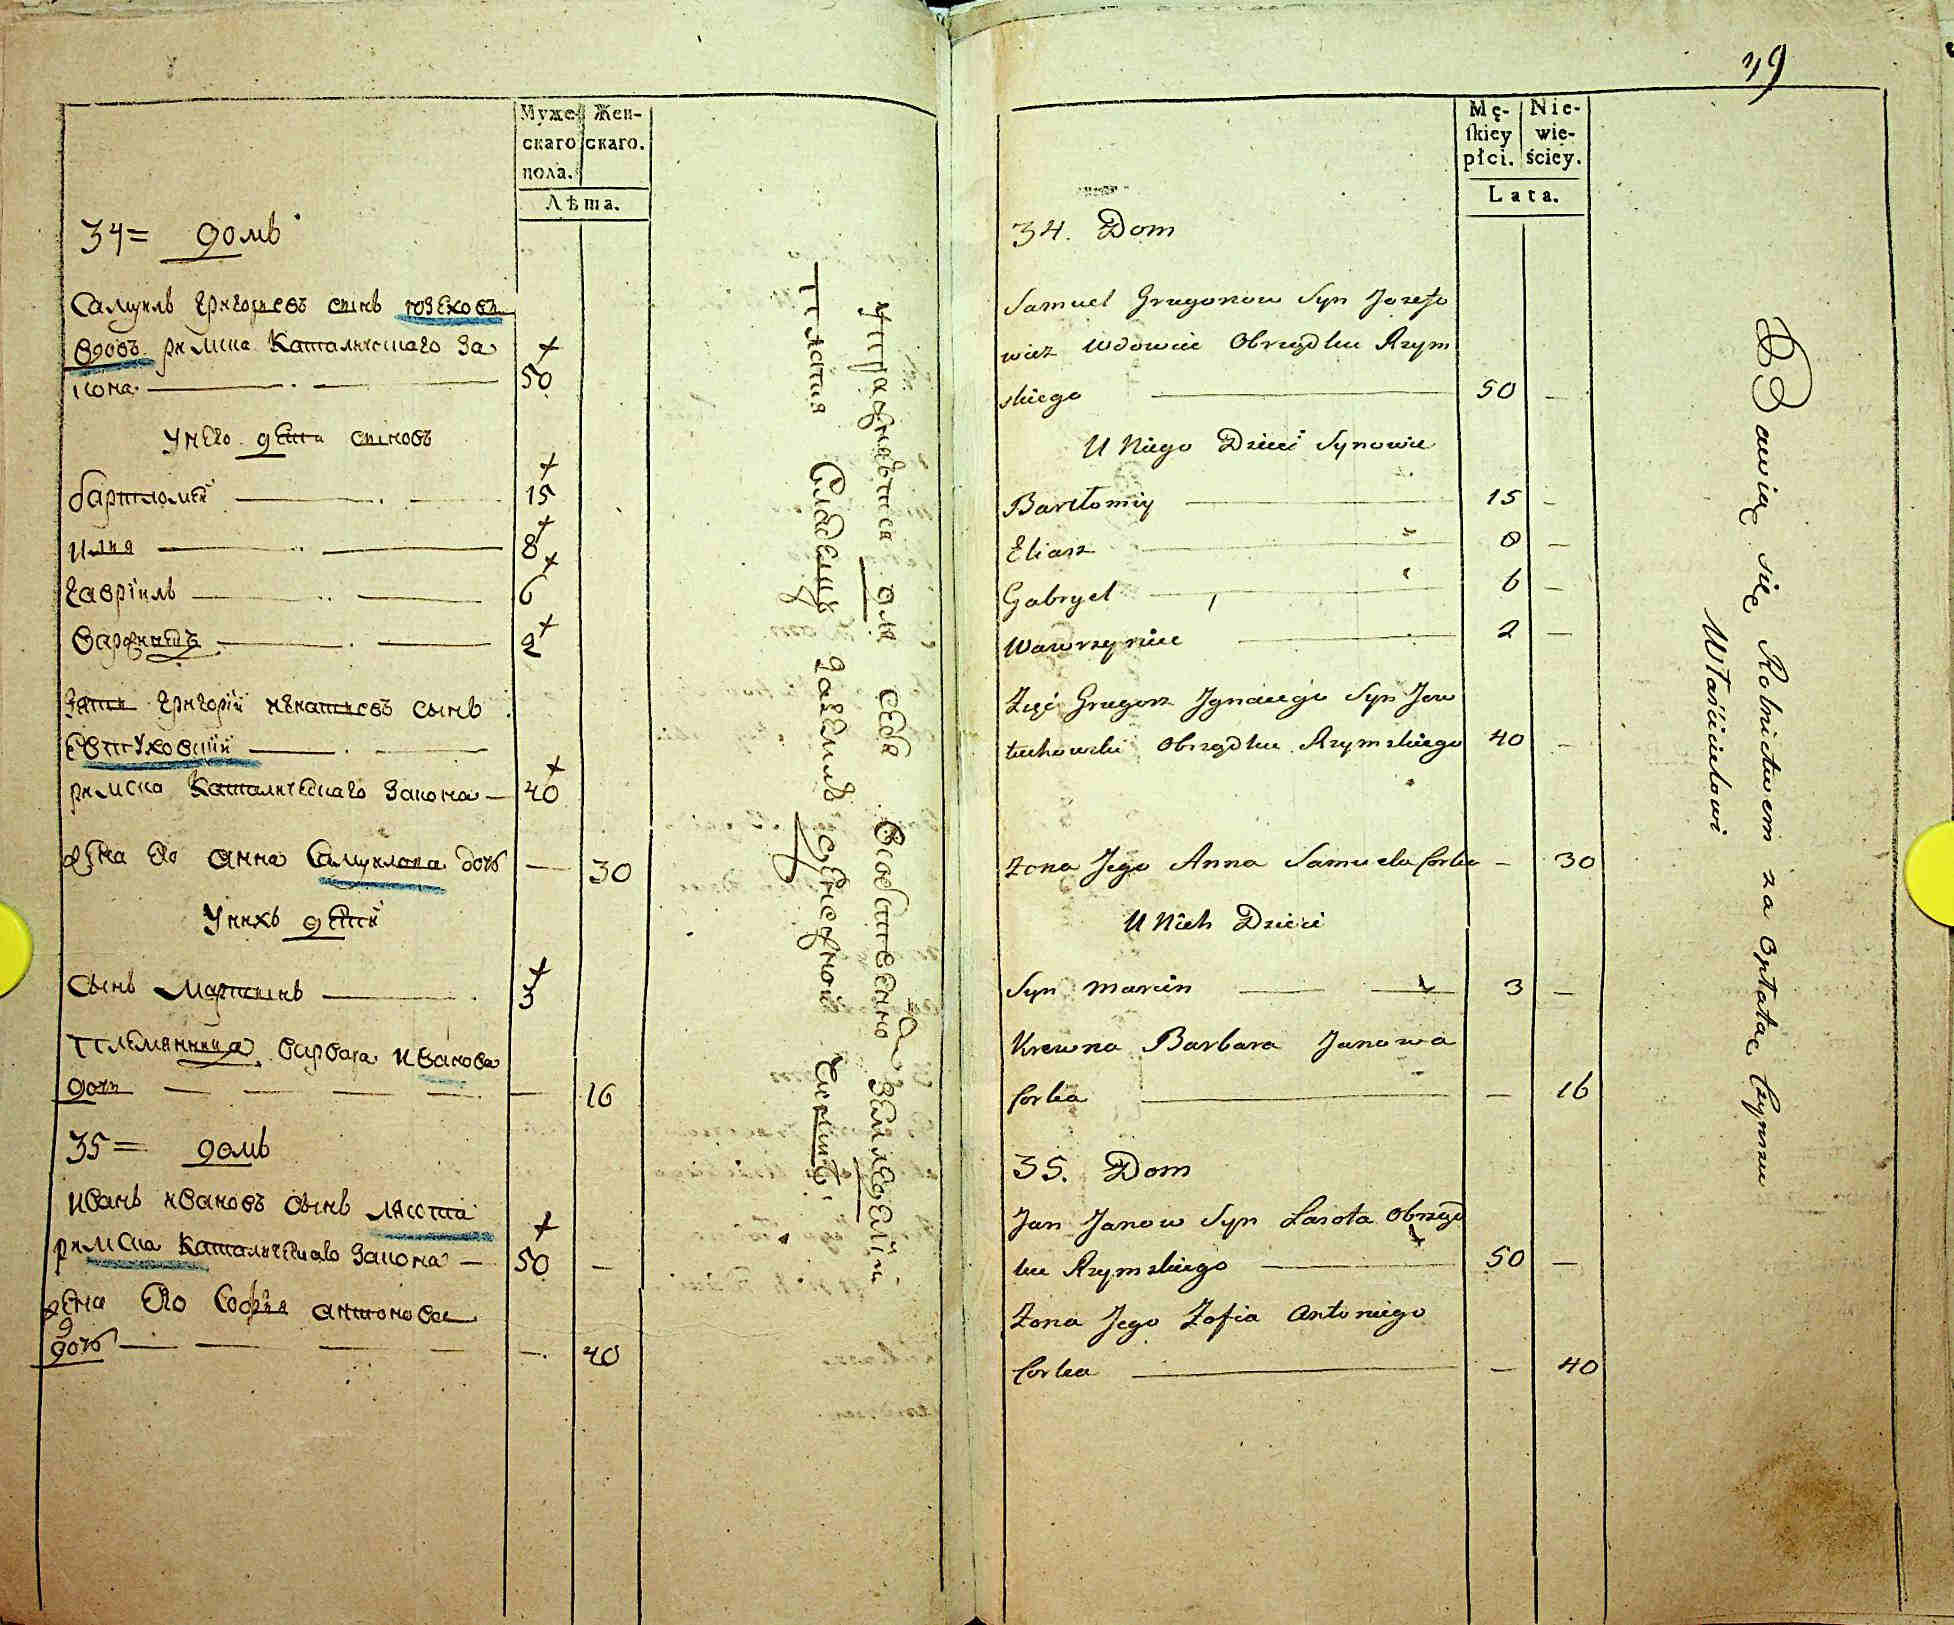 Муже-
скаго
пола.
Жен-
скаго.
Лѣта.
34= домъ
Самуилъ Григорьевъ сынъ юзеховъ
вдовъ римска Католическаго за
кона 50
У него дети сыновъ
бартломей 15
илия 8
гавріилъ 6
2
зять Григорій игнатьевъ сынъ
римска Католическаго закона 40
жена его анна Самуилова дочь — 30
У нихъ дети
сынъ Мартинъ 3
племянница варвара Иванова
дочь — 16
35= домъ
Иванъ ивановъ сынъ лясота
римска Католическаго закона — 50 —
жена его Софья антонова
дочь — 40
Упражняются для себя земледел
платя Владельцу
49
Mę-
ſkiey
płci.
Nie-
wie-
ściey.
Lata.
34. Dom
Samuel Gregorow Syn Jozefo
wicz Wdowiec Obrządku Rzym
skiego 50 —
U Niego Dzieci Synowie
Bartłomiy 15 —
Eliasz 8 —
Gabryel 6 —
Wawrzyniec 2 —
Zięć Gregorz Ignacego Syn Jew
tuchowski Obrządku Rzymskiego 40 —
Żona Jego Anna Samuela Corka — 30
U Nich Dzieci
Syn Marcin 3 —
Krewna Barbara Janowa
Corka — 16
35. Dom
Jan Janow Syn Lasota Obrząd
ku Rzymskiego 50 —
Żona Jego Zofia Antoniego
Corka — 40
Bawią się Rolnictwem za Opłatac Czynszu
Właścicielowi